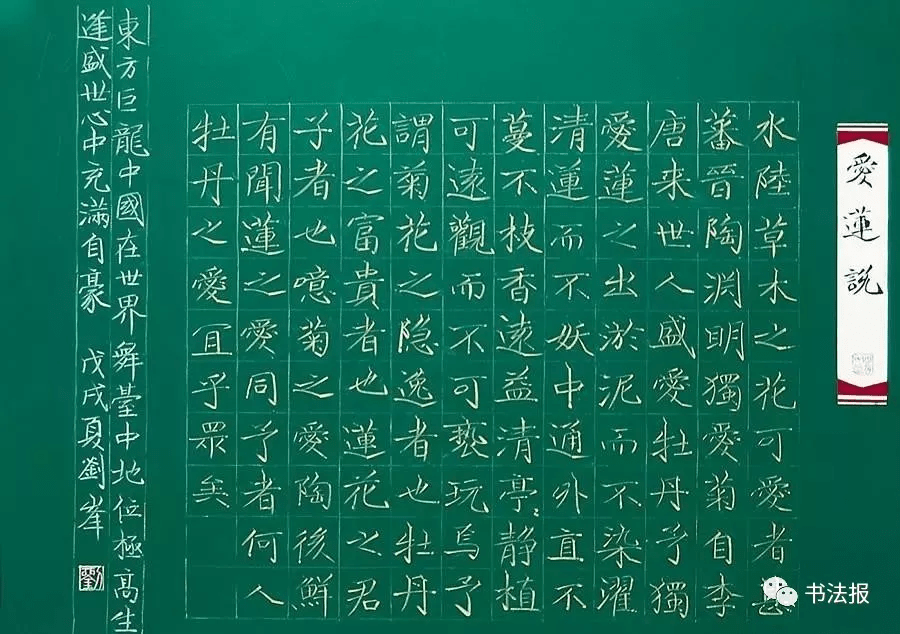 愛蓮說
水陸草木之花可愛者甚
蕃晉陶渊明獨愛菊自李
唐来世人盛愛牡丹予獨
愛蓮之出淤泥而不染濯
清漣而不妖中通外直不
蔓不枝香遠益清亭:静植
可遠觀而不可褻玩焉予
謂菊花之隐逸者也牡丹
花之富貴者也蓮花之君
子者也噫菊之愛陶後鮮
有聞蓮之愛同予者何人
牡丹之愛宜乎眾矣
東方巨龍中國在世界舞臺中地位極高生
逢盛世心中充滿自豪 戊戌夏劉峯
劉
书法报